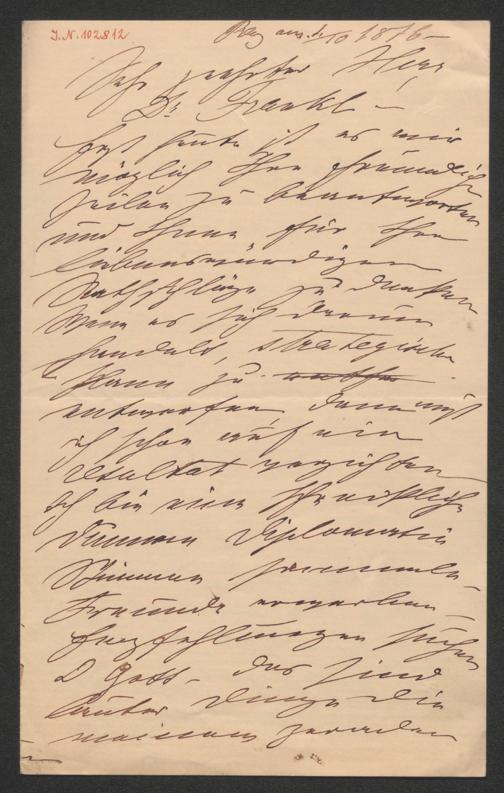 J.N. 102812
Prag am 1/10 1876 –
Sehr geehrter Herr
Dr Frankl –
Erst heute ist es mir
möglich Ihre freundliche
Zeilen zu beantworten
und Ihnen für Ihre
liebenswürdigen
Rathschläge zu danken
Wenn es sich darum
handelt, strategische
Pläne zu
entwerfen, dann muß
ich schon auf ein
Resultat verzichten
Ich bin eine schreckliche
dumme Diplomatin
Stimmen sammeln –
Freunde erwerben –
Empfehlungen suchen
O Gott – das sind
lauter Dinge die
meinem geraden